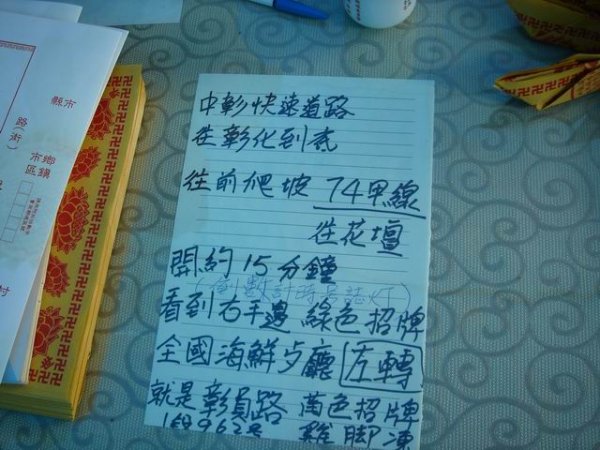 中彰快速道路
往彰化到貳
往前爬坡 74甲線
往花壇
開約15分鐘
(倒數計時号誌灯)
看到右手邊 綠色招牌
全國海鮮歺廳 左轉
就是彰員路 黃色招牌
雞腳凍
縣市
路(街)
鄉鎮
市區
村